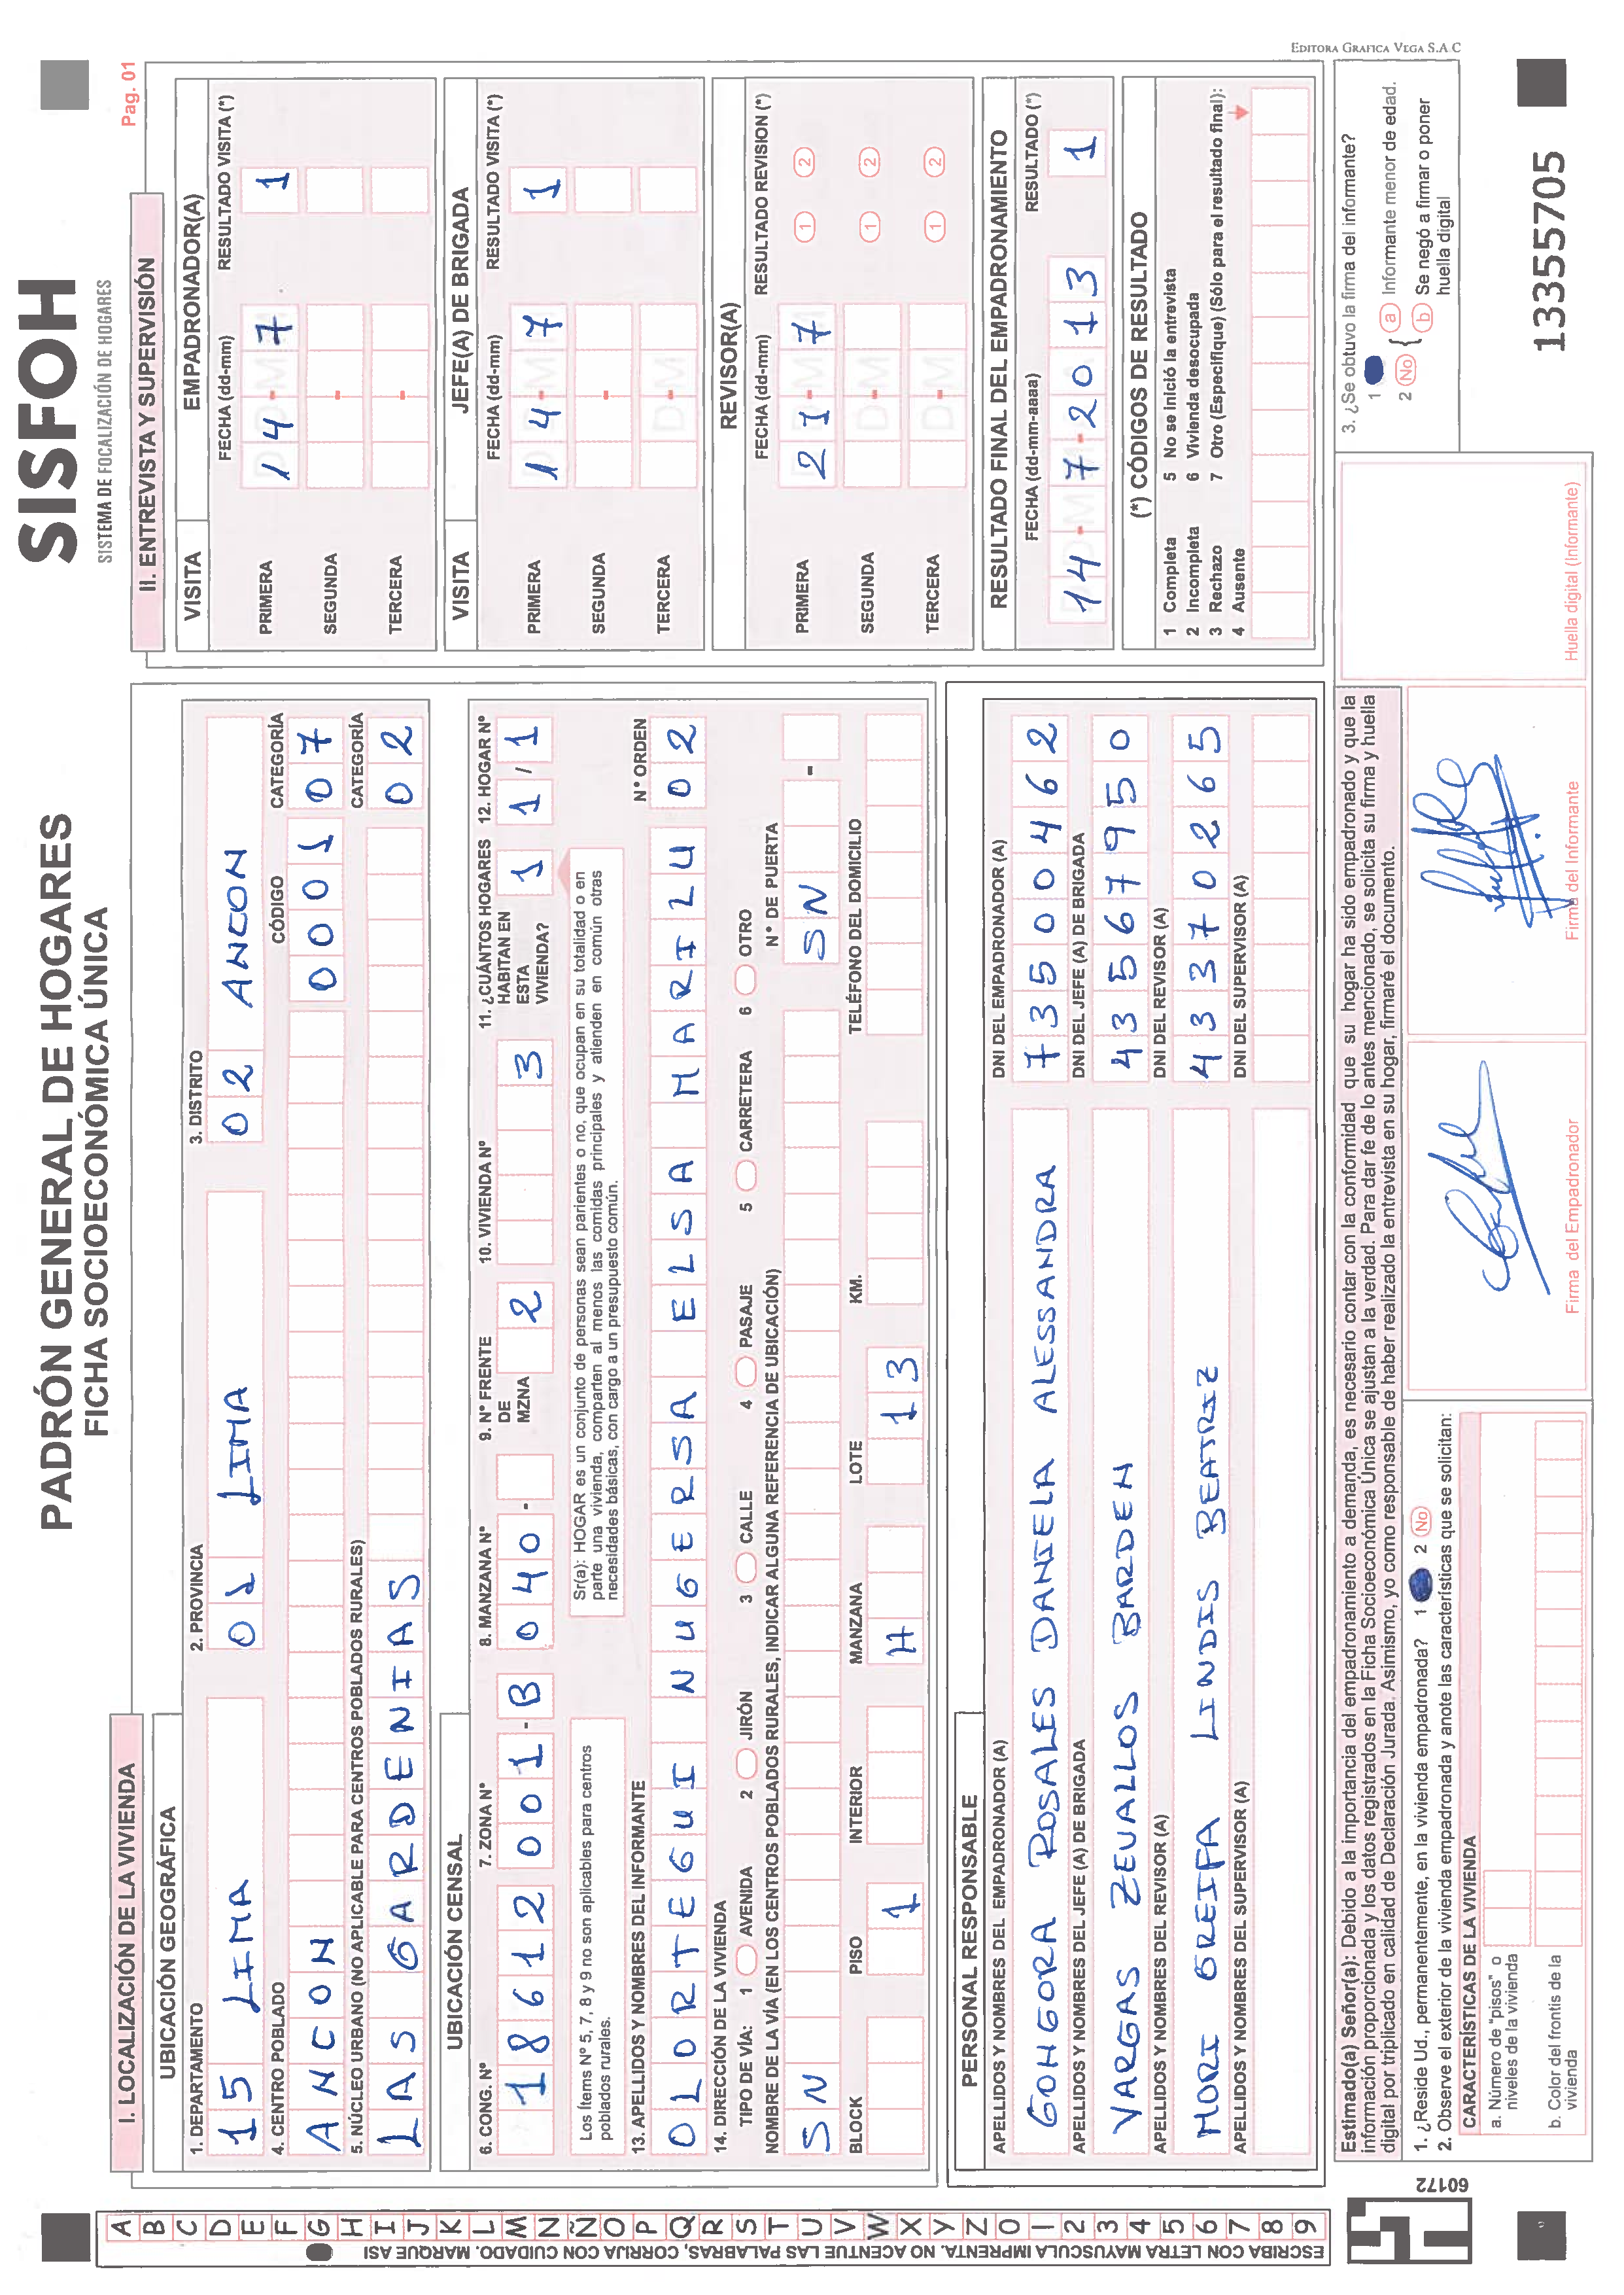 PADRÓN GENERAL DE HOGARES
FICHA SOCIOECONÓMICA ÚNICA
SISFOH
SISTEMA DE FOCALIZACIÓN DE HOGARES
Pag. 01
I. LOCALIZACIÓN DE LA VIVIENDA
UBICACIÓN GEOGRÁFICA
1. DEPARTAMENTO 2. PROVINCIA 3. DISTRITO
15 LIMA 01 LIMA 02 ANCON
4. CENTRO POBLADO CÓDIGO CATEGORÍA
ANCON 0001 07
5. NÚCLEO URBANO (NO APLICABLE PARA CENTROS POBLADOS RURALES) CATEGORÍA
LAS GARDENIAS 02
UBICACIÓN CENSAL
6. CONG. Nº 7. ZONA Nº 8. MANZANA Nº 9. Nº FRENTE DE MZNA 10. VIVIENDA Nº 11. ¿CUÁNTOS HOGARES HABITAN EN ESTA VIVIENDA? 12. HOGAR Nº
18612 001-B 040- 2 3 1 1/1
Los Ítems Nº 5, 7, 8 y 9 no son aplicables para centros
poblados rurales.
Sr(a): HOGAR es un conjunto de personas sean parientes o no, que ocupan en su totalidad o en
parte una vivienda, comparten al menos las comidas principales y atienden en común otras
necesidades básicas, con cargo a un presupuesto común.
13. APELLIDOS Y NOMBRES DEL INFORMANTE Nº ORDEN
OLORTEGUI NUGERSA ELSA MARILU 02
14. DIRECCIÓN DE LA VIVIENDA
TIPO DE VÍA: 1 AVENIDA 2 JIRÓN 3 CALLE 4 PASAJE 5 CARRETERA 6 OTRO
NOMBRE DE LA VÍA (EN LOS CENTROS POBLADOS RURALES, INDICAR ALGUNA REFERENCIA DE UBICACIÓN) Nº DE PUERTA
SN SN -
BLOCK PISO INTERIOR MANZANA LOTE KM. TELÉFONO DEL DOMICILIO
1 H 13
PERSONAL RESPONSABLE
APELLIDOS Y NOMBRES DEL EMPADRONADOR (A) DNI DEL EMPADRONADOR (A)
GONGORA ROSALES DANIELA ALESSANDRA 73500462
APELLIDOS Y NOMBRES DEL JEFE (A) DE BRIGADA DNI DEL JEFE (A) DE BRIGADA
VARGAS ZEVALLOS BARDEN 43567950
APELLIDOS Y NOMBRES DEL REVISOR (A) DNI DEL REVISOR (A)
MORI GREIFA LINDIS BEATRIZ 43370265
APELLIDOS Y NOMBRES DEL SUPERVISOR (A) DNI DEL SUPERVISOR (A)
II. ENTREVISTA Y SUPERVISIÓN
VISITA EMPADRONADOR(A)
FECHA (dd-mm) RESULTADO VISITA (*)
PRIMERA 14-7 1
SEGUNDA -
TERCERA -
VISITA JEFE(A) DE BRIGADA
FECHA (dd-mm) RESULTADO VISITA (*)
PRIMERA 14-7 1
SEGUNDA -
TERCERA D-M
REVISOR(A)
FECHA (dd-mm) RESULTADO REVISION (*)
PRIMERA 21-7 1 2
SEGUNDA D-M 1 2
TERCERA D-M 1 2
RESULTADO FINAL DEL EMPADRONAMIENTO
FECHA (dd-mm-aaaa) RESULTADO (*)
14-7-2013 1
(*) CÓDIGOS DE RESULTADO
1 Completa 5 No se inició la entrevista
2 Incompleta 6 Vivienda desocupada
3 Rechazo 7 Otro (Especifique) (Sólo para el resultado final):
4 Ausente
EDITORA GRAFICA VEGA S.A.C
Estimado(a) Señor(a): Debido a la importancia del empadronamiento a demanda, es necesario contar con la conformidad que su hogar ha sido empadronado y que la
información proporcionada y los datos registrados en la Ficha Socioeconómica Única se ajustan a la verdad. Para dar fe de lo antes mencionado, se solicita su firma y huella
digital por triplicado en calidad de Declaración Jurada. Asimismo, yo como responsable de haber realizado la entrevista en su hogar, firmaré el documento.
1. ¿Reside Ud., permanentemente, en la vivienda empadronada? 1 2 No
2. Observe el exterior de la vivienda empadronada y anote las características que se solicitan:
CARACTERÍSTICAS DE LA VIVIENDA
a. Número de "pisos" o
niveles de la vivienda
b. Color del frontis de la
vivienda
Firma del Empadronador
Firma del Informante
Huella digital (Informante)
3. ¿Se obtuvo la firma del informante?
1
2 No { a Informante menor de edad.
b Se negó a firmar o poner
huella digital
13355705
60172
ESCRIBA CON LETRA MAYUSCULA IMPRENTA. NO ACENTUE LAS PALABRAS, CORRIJA CON CUIDADO. MARQUE ASI
A B C D E F G H I J K L M N Ñ O P Q R S T U V W X Y Z 0 1 2 3 4 5 6 7 8 9